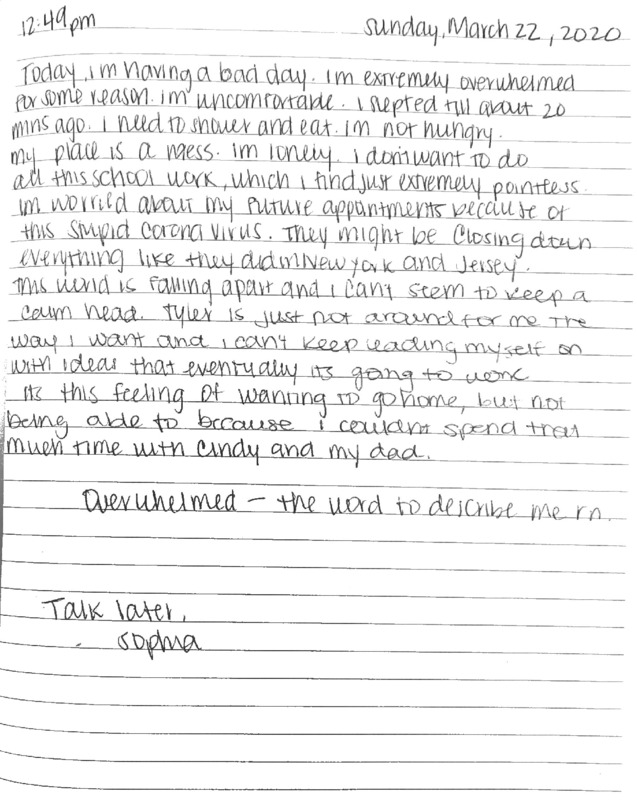 12:49pm
Sunday, March 22, 2020
Today, im having a bad day. Im extremely overwhelmed
for some reason. im uncomfortable. I slepted till about 20
mins ago. I need to shower and eat. Im not hungry.
my place is a mess. im lonely. I don't want to do
all this school work, which I find just extremely pointless.
Im worried about my future appointments because of
this stupid corona virus. They might be closing down
everything like they did in New York and Jersey.
This world is falling apart and I can't seem to keep a
calm head. Tyler is just not around for me the
way I want and I can't keep leading myself on
with ideas that eventually its going to work
Its this feeling of wanting to go home, but not
being able to because I couldn't spend that
much time with Cindy and my dad.
Overwhelmed – the word to describe me rn.
Talk later,
- Sophia